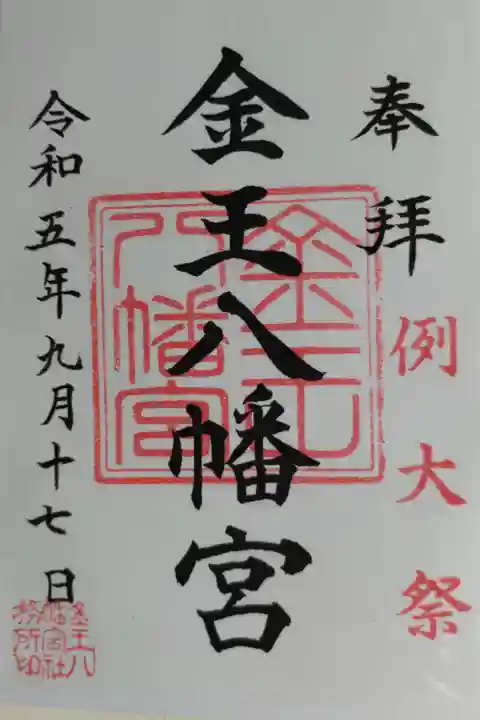 奉拝
例大祭
金王八幡宮
金王八幡宮
令和五年九月十七日
金王八幡宮社務所印